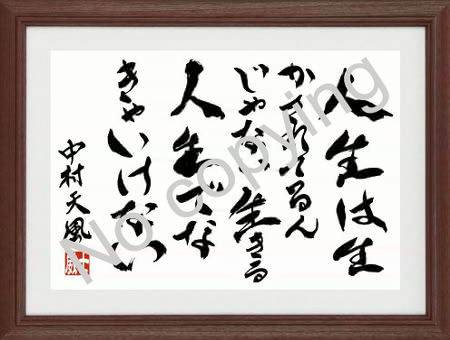 人生は生
かされてるん
じゃない生きる
人生でな
きゃいけない
中村天風
No copying